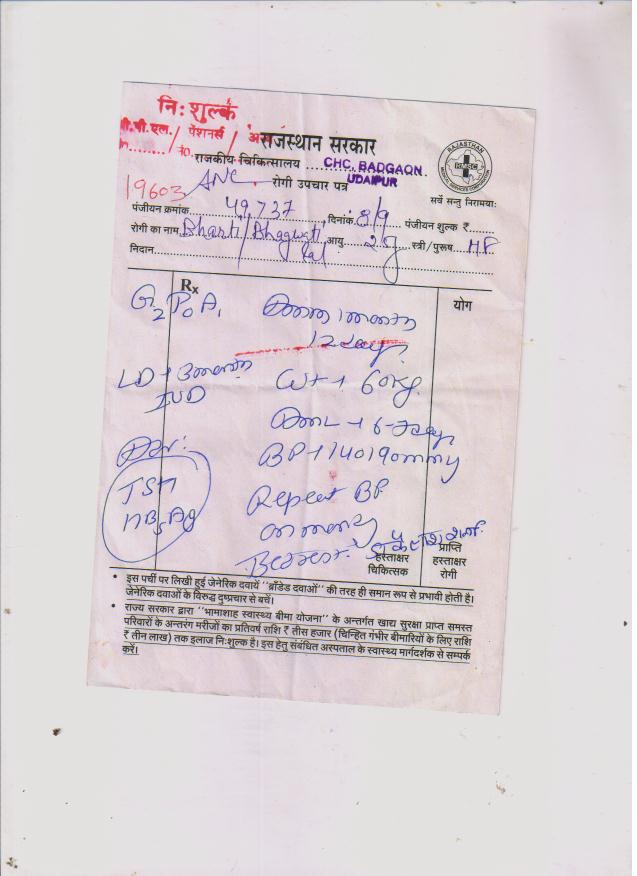 नि: शुल्क
बी.पी.एल./ पेंशनर्स /
राजस्थान सरकार
RAJASTHAN
RMSC
राजकीय चिकित्सालय CHC, BADGAON
UDAIPUR
19603 ANC रोगी उपचार पत्र
सर्वे सन्तु निरामयाः
पंजीयन क्रमांक 49,737 दिनांक 8/9 पंजीयन शुल्क ₹
रोगी का नाम Bharti/Bhagwati आयु 2 स्त्री/पुरूष HF
Lal
निदान
Rx योग
G2P0A1 1 month
12 days
LD → 3 month 
IUD
Wt → 60kg
6-7 day
Adv:
BP → 140/90mmHg
TSH
HBsAg
Repeat BP
on
हस्ताक्षर
चिकित्सक
प्राप्ति
हस्ताक्षर
रोगी
• इस पर्ची पर लिखी हुई जेनेरिक दवायें "ब्राँडेड दवाओं" की तरह ही समान रूप से प्रभावी होती है।
जेनेरिक दवाओं के विरुद्ध दुष्प्रचार से बचें।
• राज्य सरकार द्वारा "भामाशाह स्वास्थ्य बीमा योजना" के अन्तर्गत खाद्य सुरक्षा प्राप्त समस्त
परिवारों के अन्तरंग मरीजों का प्रतिवर्ष राशि ₹ तीस हजार (चिन्हित गंभीर बीमारियों के लिए राशि
₹ तीन लाख) तक इलाज निःशुल्क है। इस हेतु संबंधित अस्पताल के स्वास्थ्य मार्गदर्शक से सम्पर्क
करें।